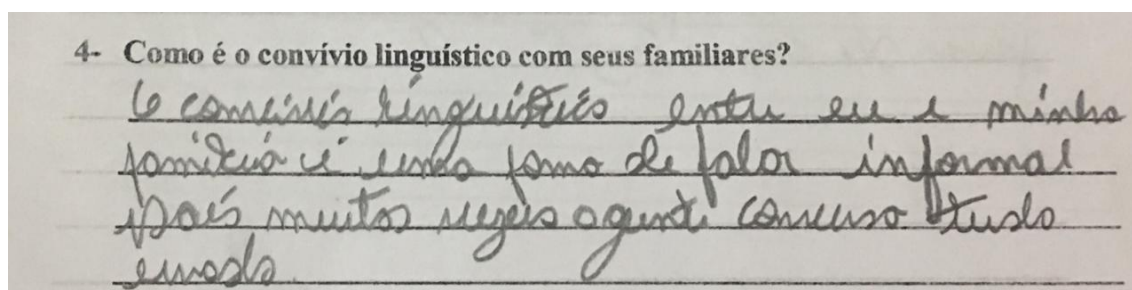 4- Como é o convívio linguístico com seus familiares?
O convívio linguístico entre eu e minha
familia é uma fomo de falar informal
pois muitas vezes agente conversa tudo
errado.